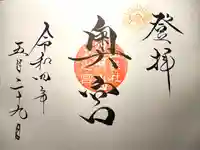 登拝
奥宮
令和四年
五月二十九日